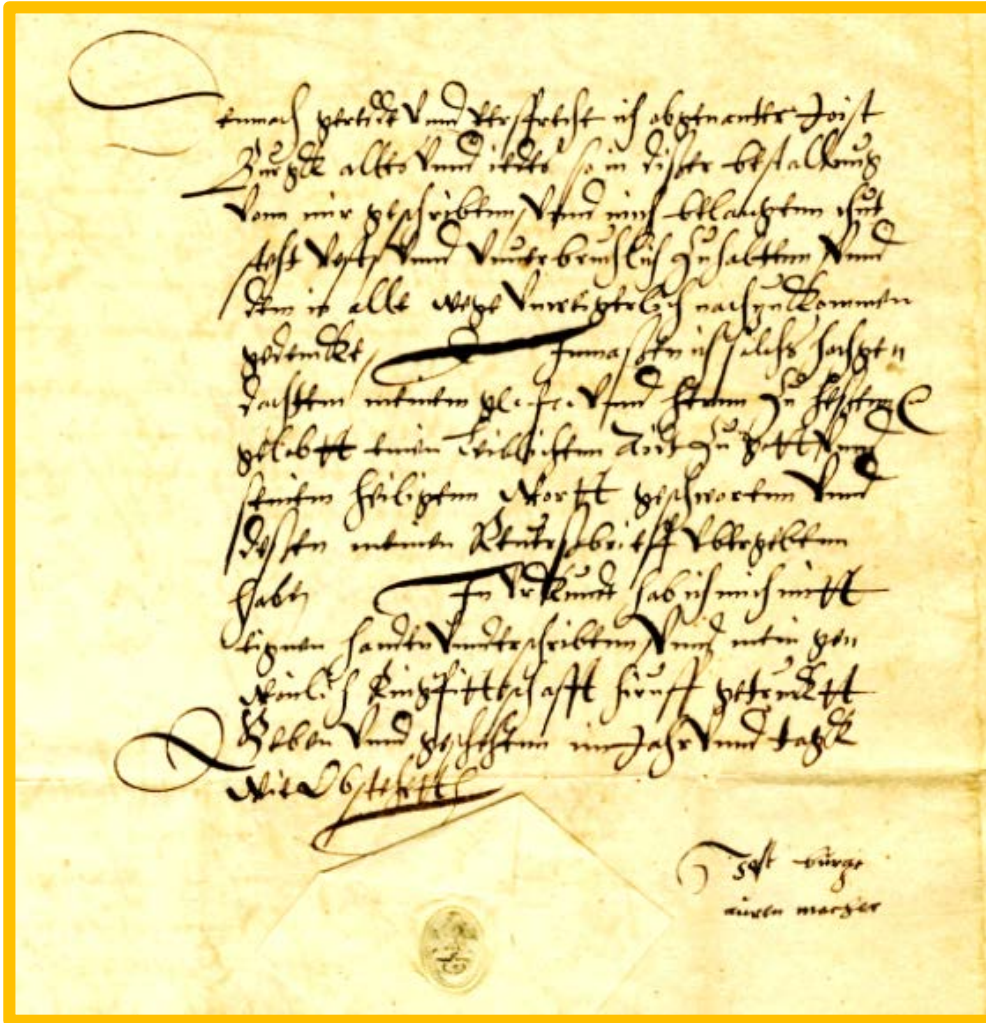 Demnach gerede Vnnd versprech ich obgenanter Joist
Burgk alles Vnnd iedes so in disser bestallung
Vonn mir geschribenn, Vnnd mich belangenn thut
stehtt Vhest Vnnd Vnuerbruchlich zuhaltenn Vnnd
dem in alle wege Vnweigerlich nachzukommen
gedencke, Inmassen ich solchs hochgen
dachtem meinem g. f. Vnnd hernn zu
gelobtt einen Leiblichenn Aidt zu gott Vnnd
seinem heiligenn Wortt geschworenn Vnnd
dessen meinen Reuerssbrieff Vbergebenn
habe, In Vrkundt hab ich mich mitt
eignen handen Vnnderschribenn, Vnnd mein gen
wonlich Ringpittschafft hiruff getrucktt
Geben Vnnd geschehenn im Jahr Vnnd tagk
Wie Obstehett
Jost burge
auren macher